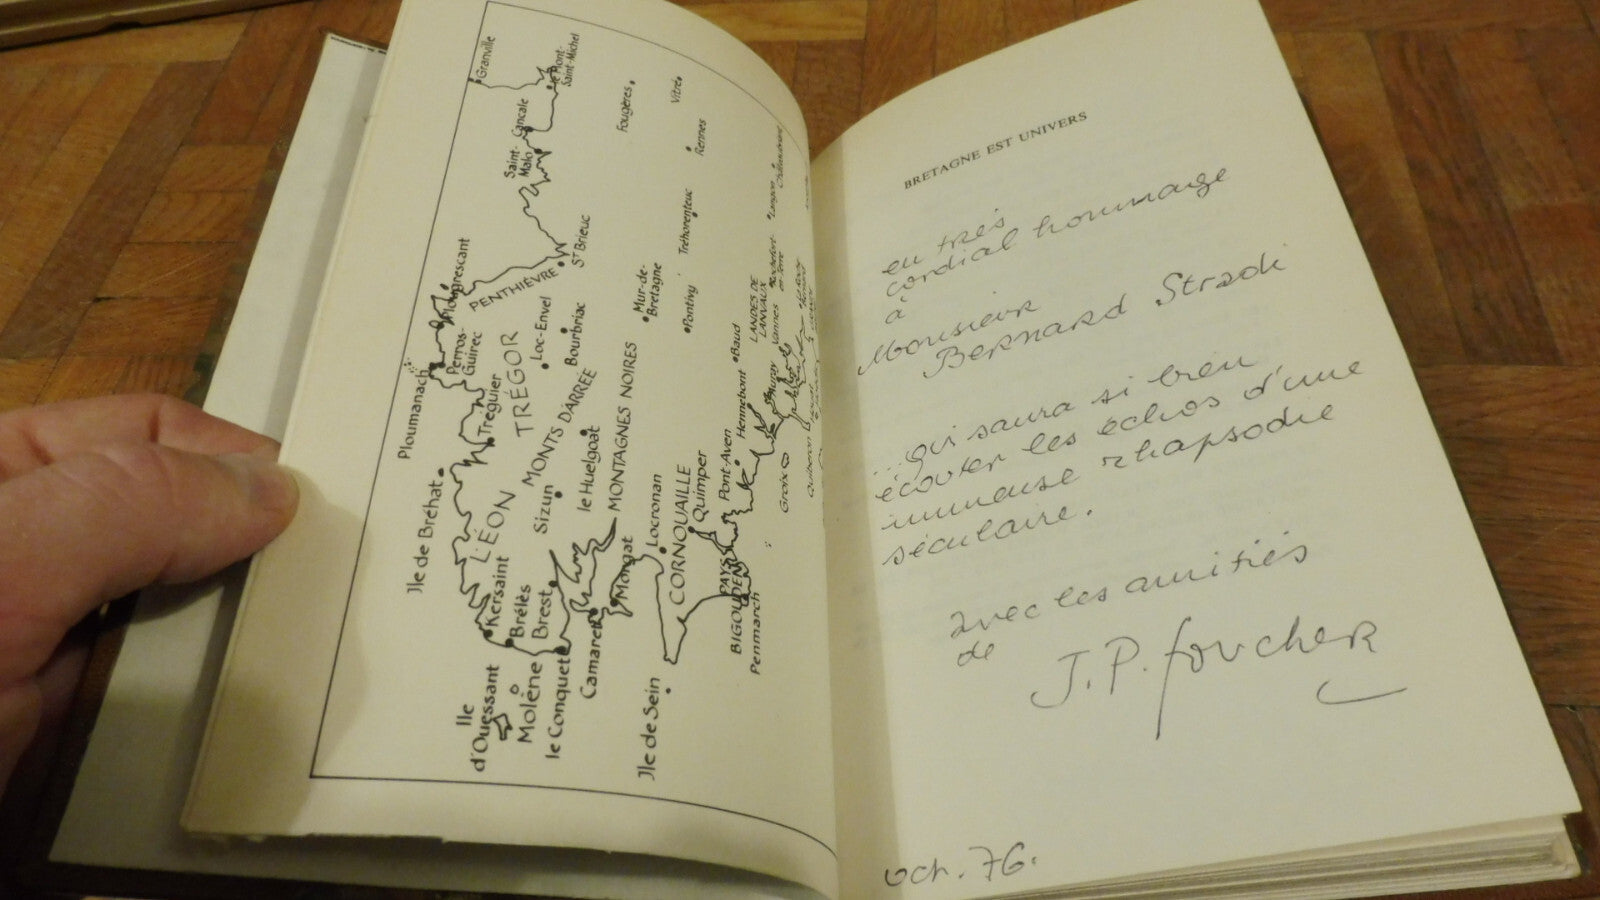 Granville
le Mont-
Saint-Michel
Cancale
Saint-
Malo
Fougères
Vitré
Rennes
Plougrescant
PENTHIÈVRE
St Brieuc
Tréhorenteuc
Langon
Perros-
Guirec
Loc-Envel
Bourbriac
Mur-de-
Bretagne
Pontivy
LANDES DE
LANVAUX
Rochefort-
en-Terre
Vannes
Ploumanach
Tréguier
TRÉGOR
MONTS D'ARRÉE
MONTAGNES NOIRES
Baud
Hennebont
Auray
Ile de Bréhat
L'ÉON
Sizun
le Huelgoat
Locronan
CORNOUAILLE
Quimper
Pont-Aven
Groix
Quiberon
Kersaint
Brélès
Brest
Morgat
PAYS
BIGOUDEN
Penmarch
Ile
d'Ouessant
Molène
le Conquet
Camaret
Ile de Sein
BRETAGNE EST UNIVERS
en très
cordial hommage
à
Monsieur
Bernard Stradi
...qui saura si bien
écouter les échos d'une
immense rhapsodie
séculaire.
avec les amitiés
de
J. P. Foucher
oct. 76.